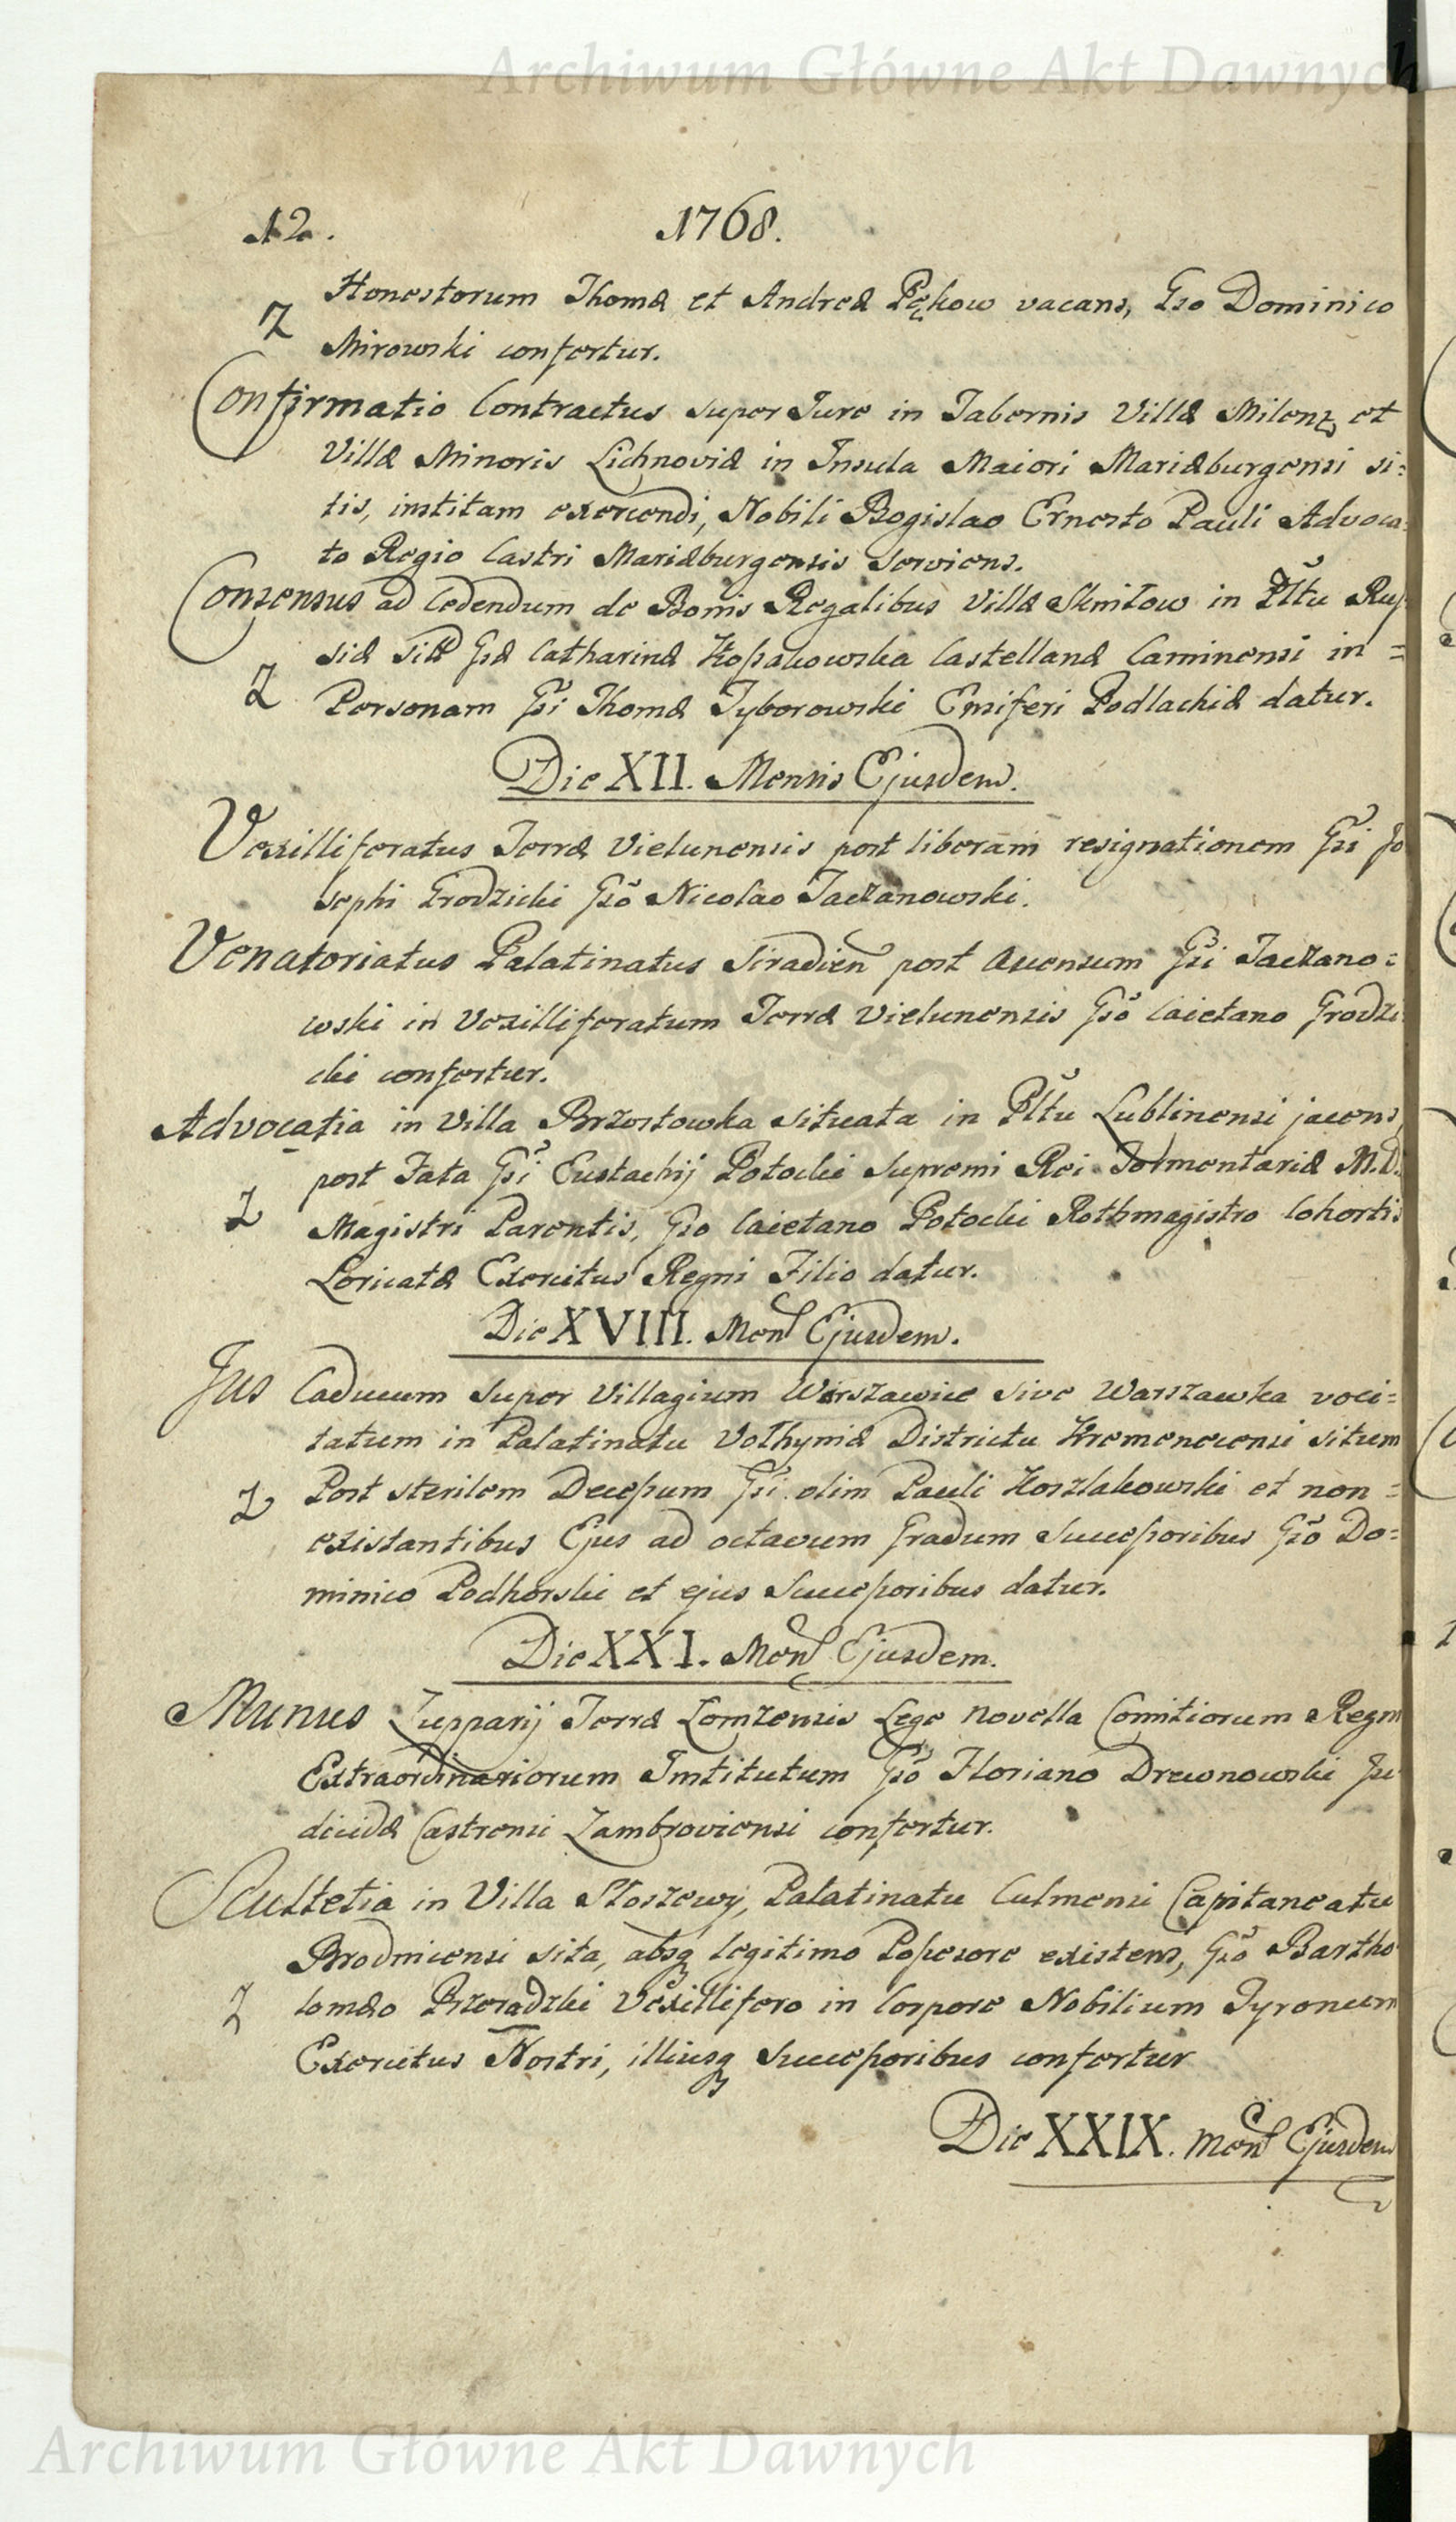 Archiwum Główne Akt Dawnych
12. 1768.
Honestorum Thomæ et Andreæ Pękow vacans, Gso Dominico
Z
Mirowski confertur.
Confirmatio Contractus super Jure in Tabernis Villæ Milenz et
Villæ Minoris Lichnoviæ in Insula Maiori Mariæburgensi si=
tis, institam exercendi, Nobili Bogislao Ernesto Pauli Advoca=
to Regio Castri Mariæburgensis serviens.
Consensus ad Cedendum de Bonis Regalibus Villæ Sknitow in Pltu Rus
siæ Gsæ Catharinæ Kossakowska Castellanæ Caminensi in =
Z
Personam Gsi Thomæ Tyborowski Ensiferi Podlachiæ datur.
Die XII. Mensis Ejusdem.
Vexilliferatus Terræ Vielunensis post liberam resignationem Gsi Jo
sephi Grodzicki Gsō Nicolao Taczanowski.
Venatoriatus Palatinatus Siradien post Ascensum Gsi Taczano=
wski in Vexilliferatum Terræ Vielunensis Gsō Caietano Grodzi
cki confertur.
Advocatia in Villa Brzostowka situata in Pltu Lublinensi jacens,
post Fata Gsi Eustachij Potocki Supremi Rei Tormentariæ M.D.
Z
Magistri Parentis, Gso Caietano Potocki Rothmagistro Cohortis
Loricatæ Exercitus Regni Filio datur.
Die XVIII. Men Ejusdem.
Jus Caducum super Villagium Warszawice sive Warszawka voci=
tatum in Palatinatu Volhyniæ Districtu Kremenecensi situm
Z
Post sterilem Decessum Gsi olim Pauli Koszlakowski et non =
existantibus Ejus ad octavum Gradum Successoribus Gsō Do=
minico Podhorski et ejus Successoribus datur.
Die XXI. Men Ejusdem.
Munus Zupparij Terræ Lomzensis Lege novella Comitiorum Regni
Extraordinariorum Institutum Gsō Floriano Drewnowski Ju
dicidæ Castrensi Zambroviensi confertur.
Scultetia in Villa Słoszewy, Palatinatu Culmensi Capitaneatu
Brodnicensi sita, absq legitimo Possesore existens, Gsō Bartho
Z
lomæo Przeradzki Vexillifero in Corpore Nobilium Tyronum
Exercitus Nostri, illiusq Successoribus confertur
Die XXIX. Men Ejusdem
Archiwum Główne Akt Dawnych